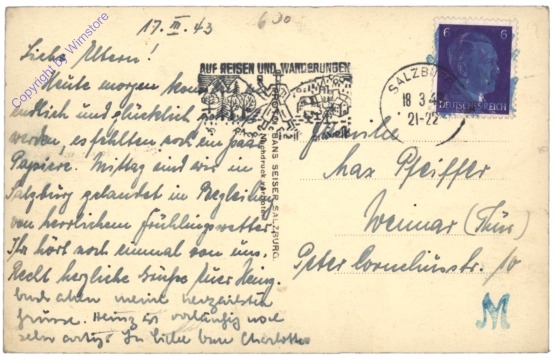 17. III. 43
630
Liebe Eltern!
Heute morgen
endlich und glücklich
werden, es fehlten noch ein paar
Papiere. Mittag sind wir in
Salzburg gelandet in Begleitung
von herrlichem Frühlingswetter.
Ihr hört noch einmal von uns.
Recht herzliche Grüsse Euer Heinz.
Euch allen meine herzlichsten
Grüsse. Heinz ist vorläufig noch
sehr artig! In Liebe Eure Charlotte
AUF REISEN UND WANDERUNGEN
SALZBURG
18 3 4
21-22
6 6
DEUTSCHES REICH
HANS SEISER, SALZBURG.
Nachdruck verboten
Familie
Max Pfeiffer
Weimar (Thür)
Peter Corneliusstr. 10
M
Copyright by Wimstore